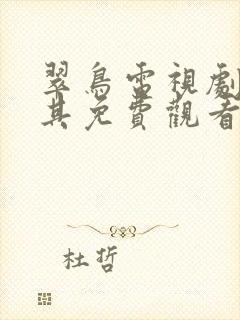 翠鳥電視劇
其免費觀看
杜哲